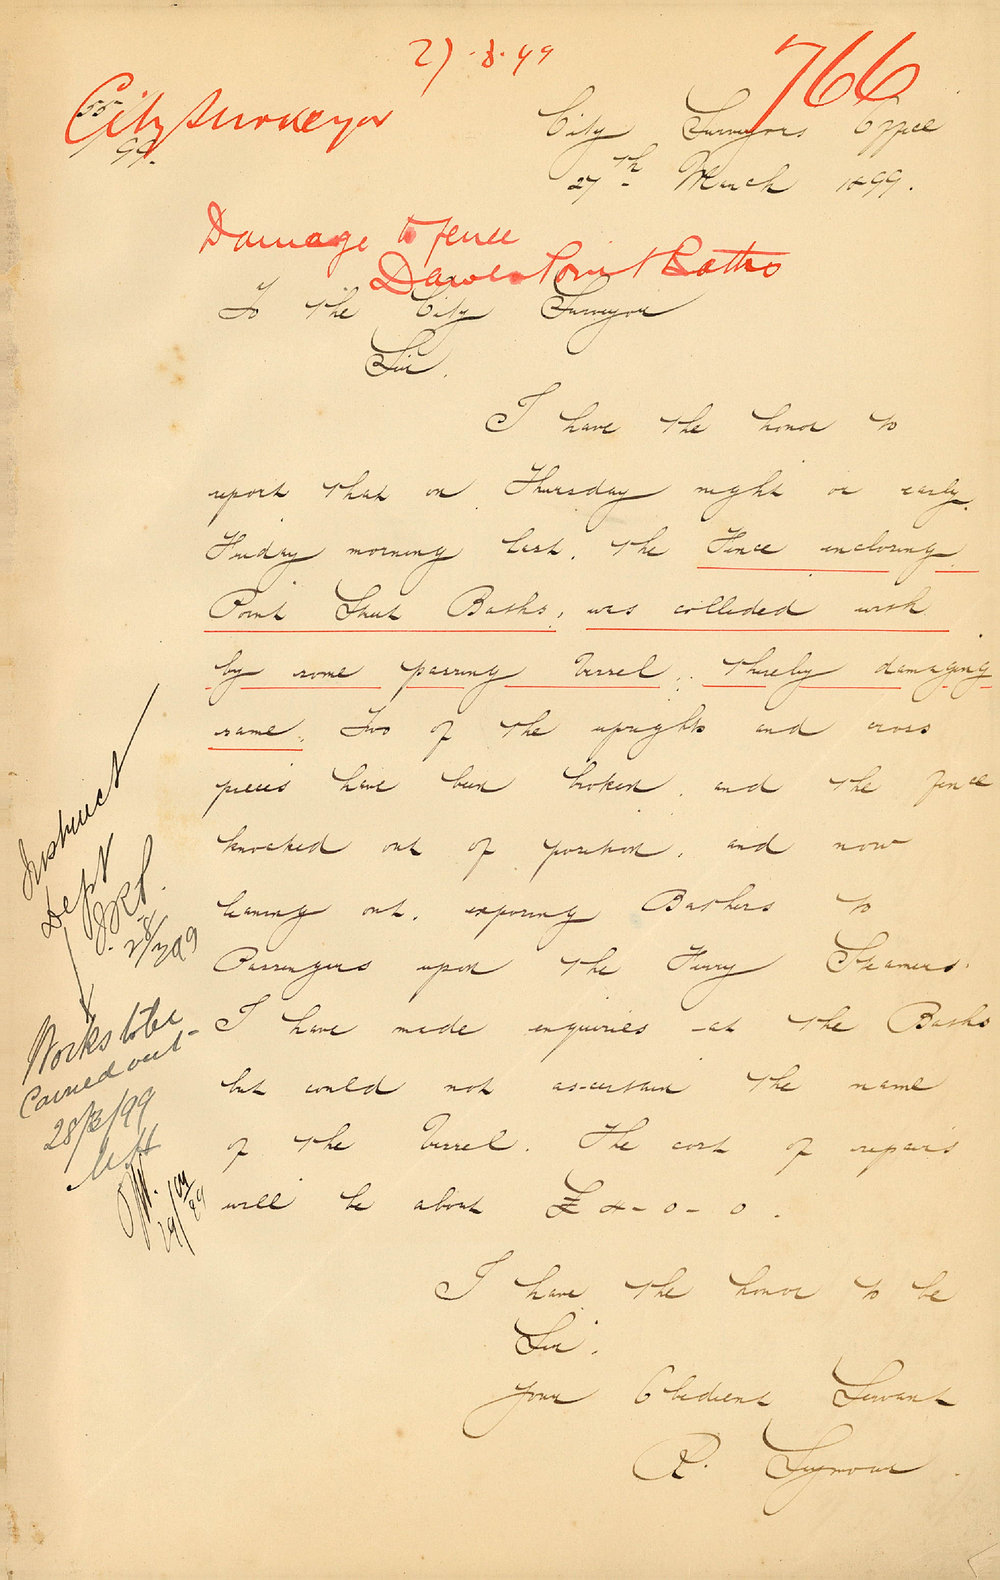 27.3.99
766
City Surveyor
55
99.
City Surveyors Office
27th March 1899.
Damage to fence
Dawes Point Baths
To the City Surveyor
Sir.
I have the honor to
report that on Thursday night or early
Friday morning last, the Fence enclosing
Point Street Baths, was collided with
by some passing Vessel, thereby damaging
same. Two of the uprights and cross
pieces have been broken, and the fence
knocked out of position, and now
leaning out, exposing Bathers to
Passengers upon the Ferry Steamers.
I have made enquiries at the Baths
but could not ascertain the name
of the Vessel. The cost of repairs
will be about £4-0-0.
I have the honor to be
Sir.
Your Obedient Servant
R. Seymour.
Instruct
Dept
28/3/99
Works to be
Carried out
28/3/99